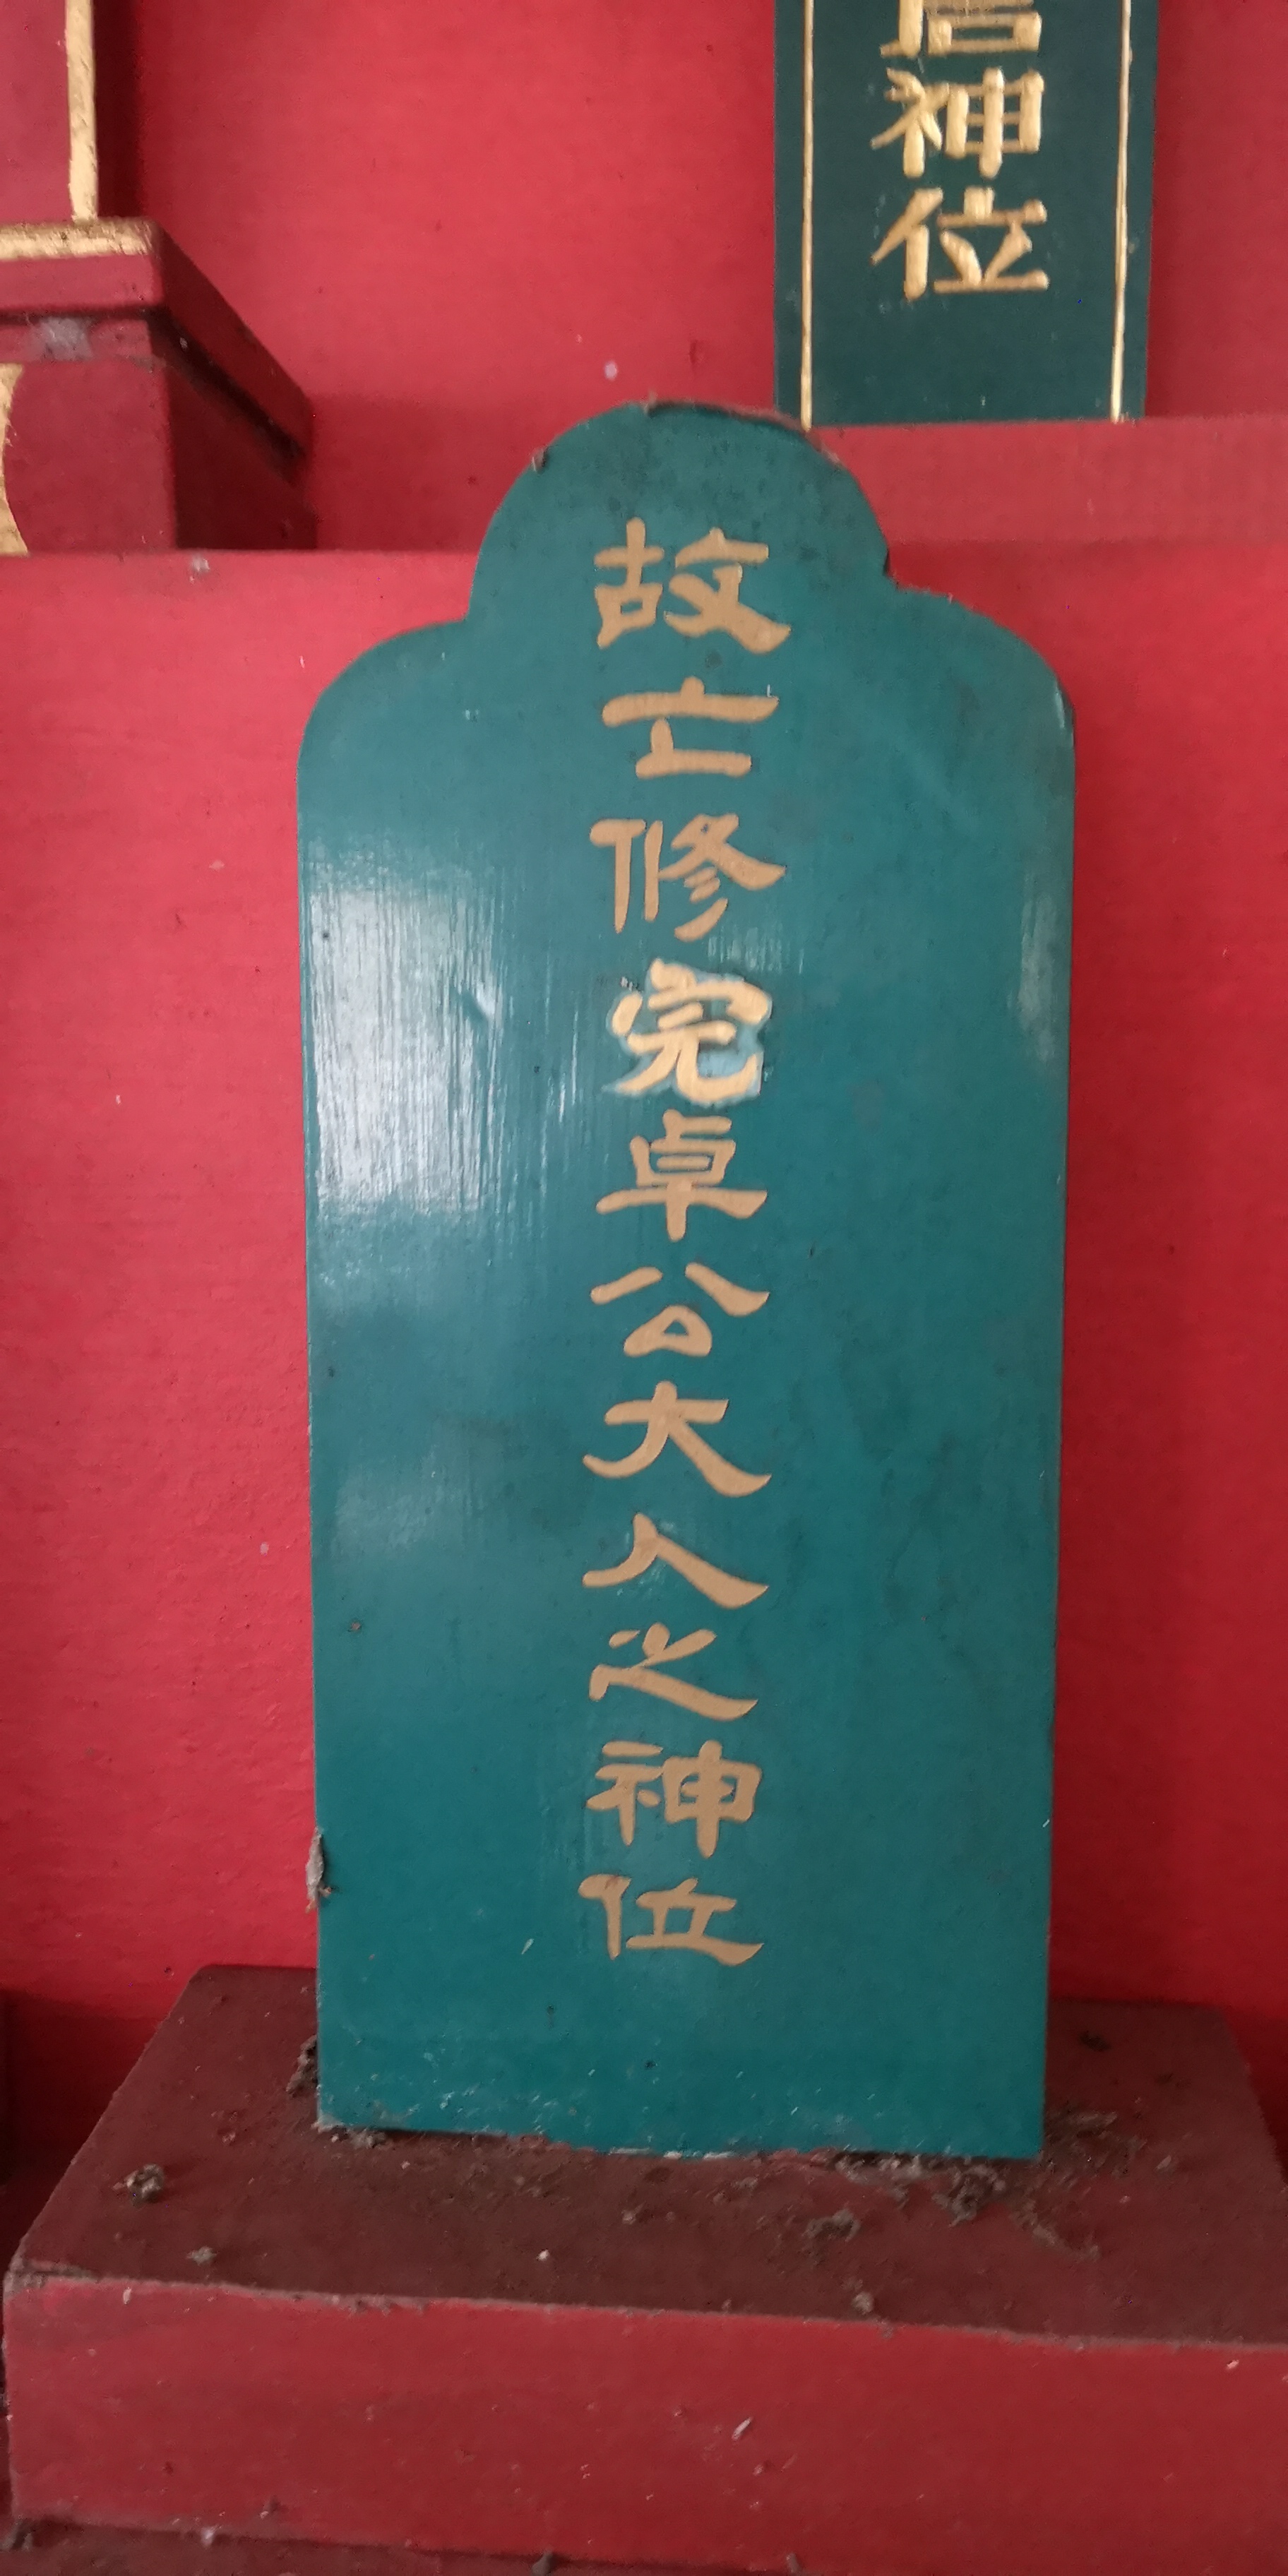 神位
故亡修完卓公大人之神位